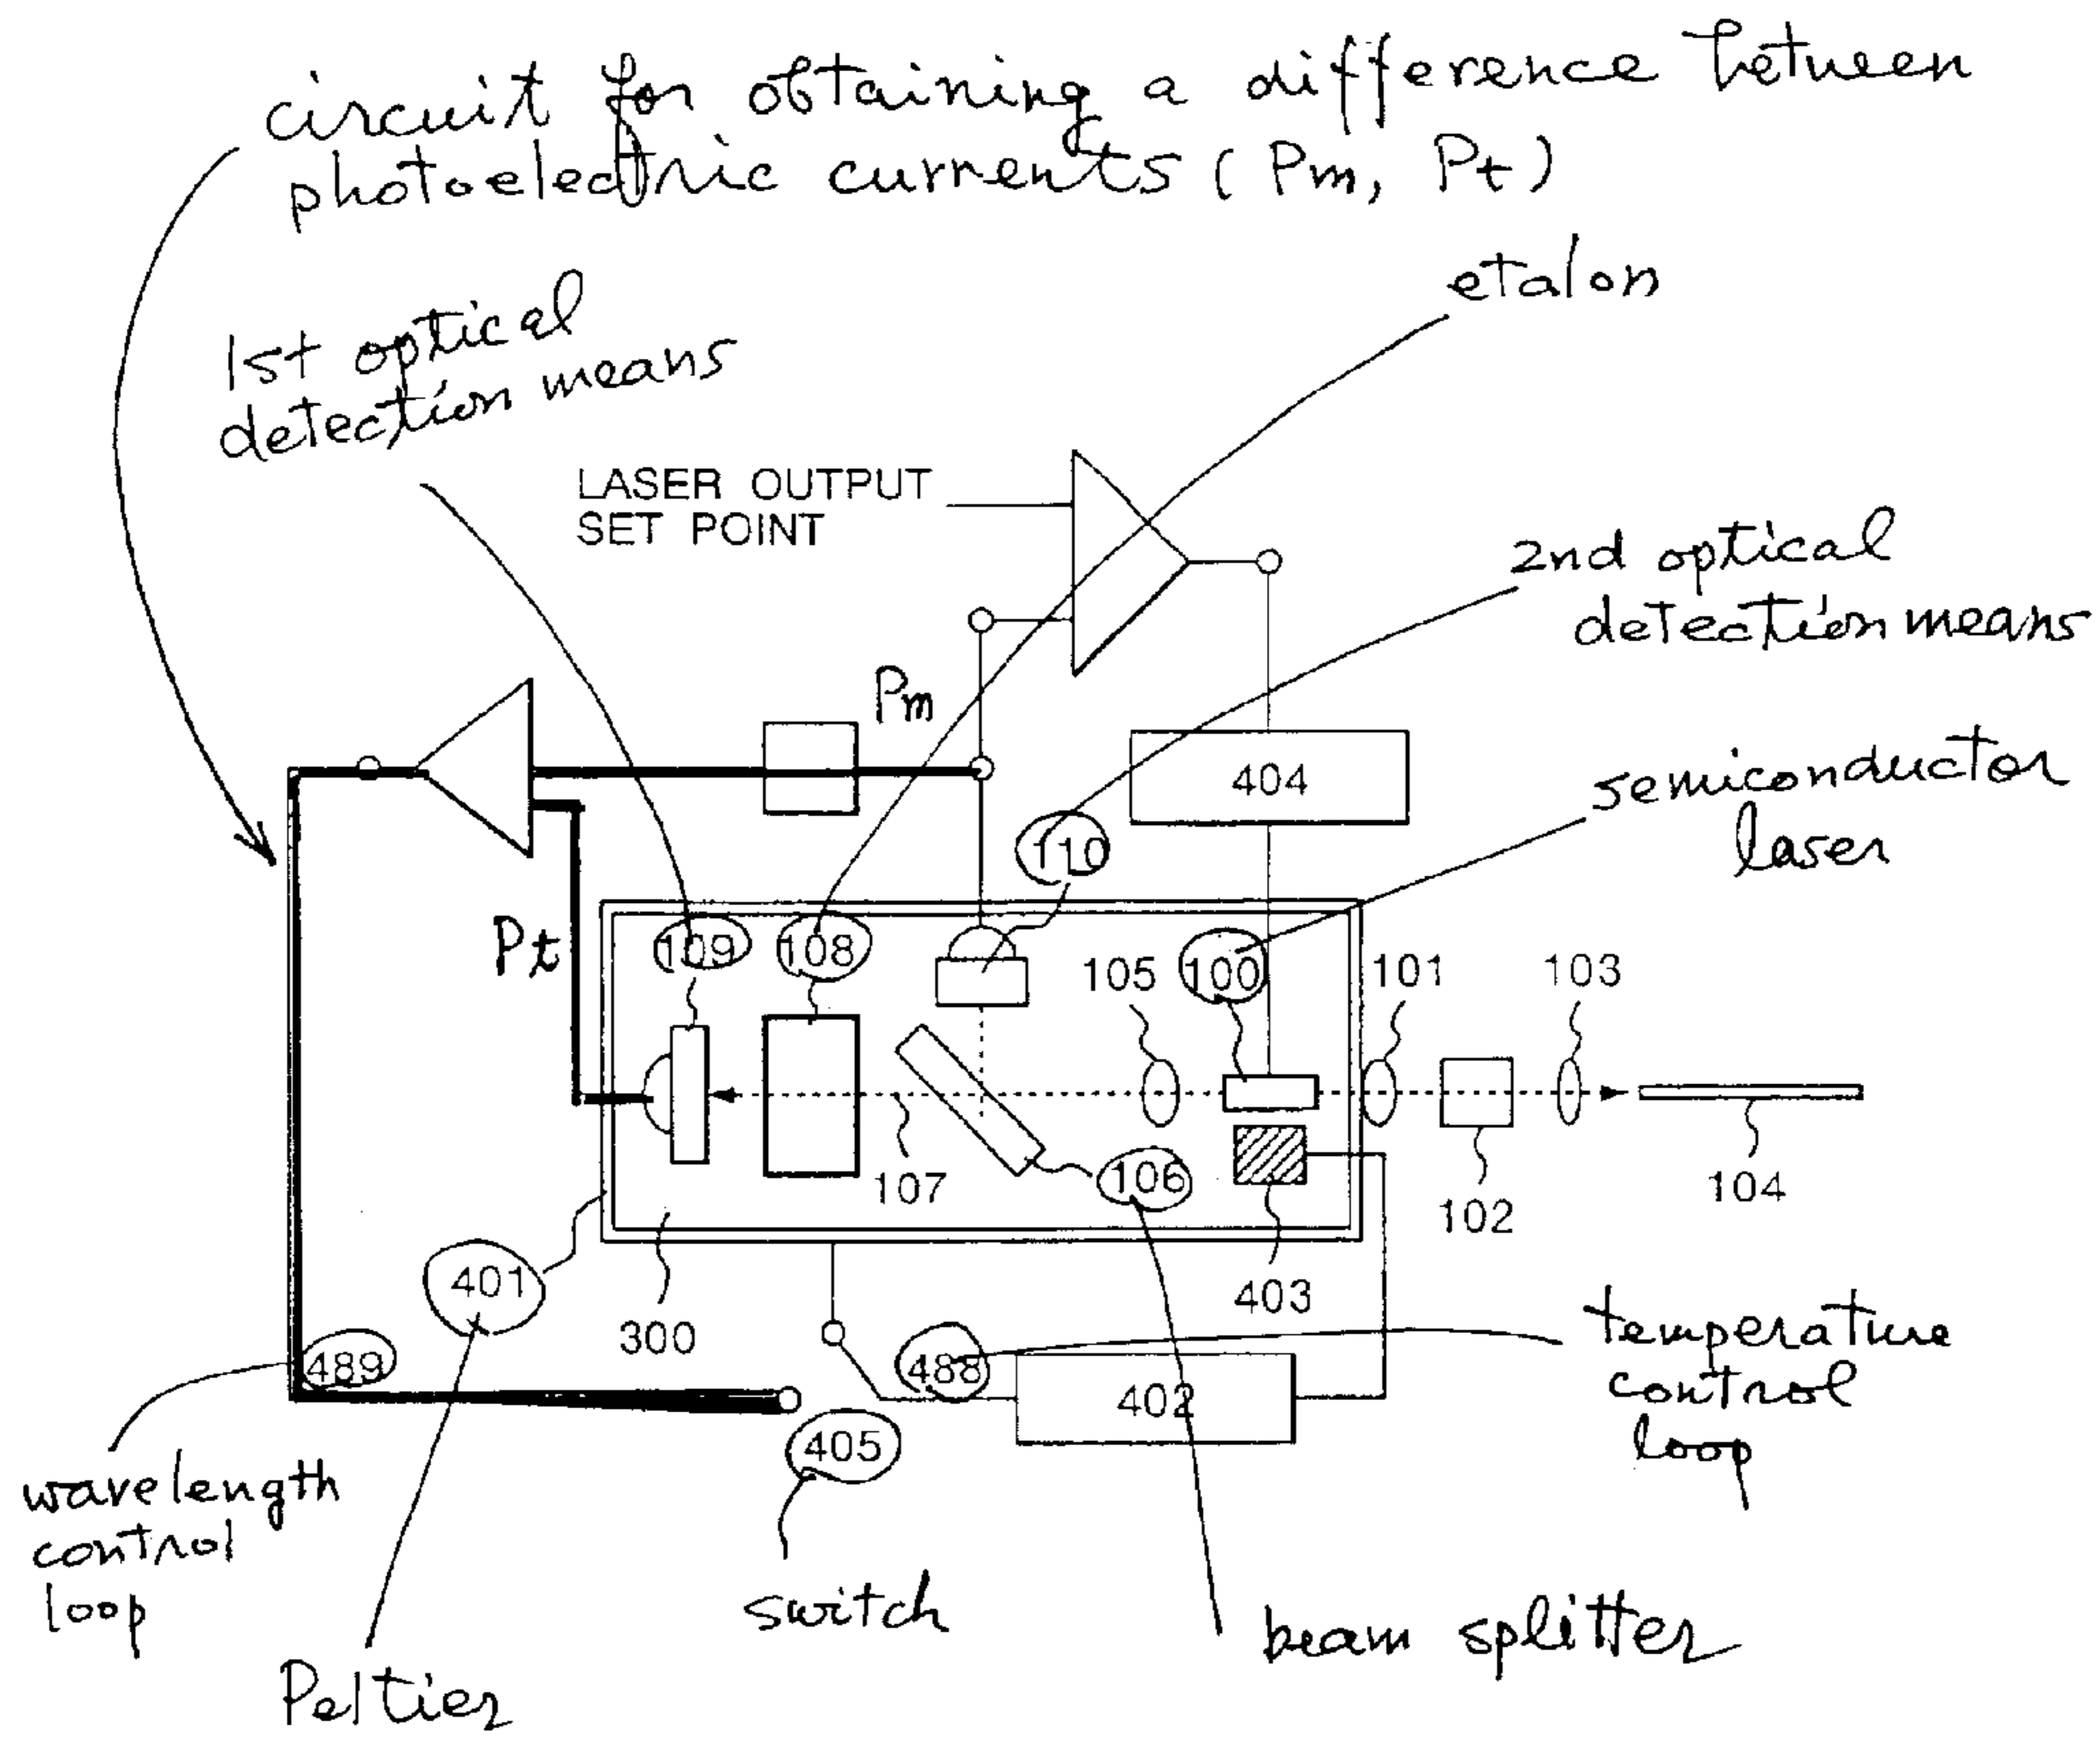 circuit for obtaining a difference between
photoelectric currents (Pm, Pt)
etalon
1st optical
detection means
LASER OUTPUT
SET POINT
2nd optical
detection means
Pm
404
semiconductor
laser
110
Pt
109
108
105
100
101
103
107
106
102
104
401
300
403
489
488
402
temperature
control
loop
405
wavelength
control
loop
switch
beam splitter
Peltier